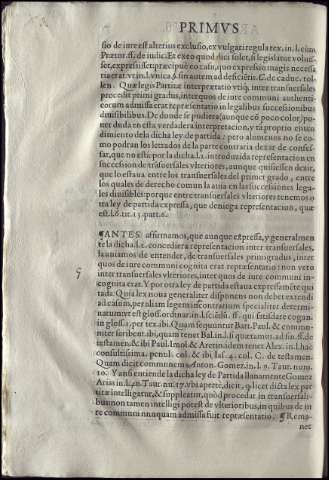 PRIMVS
sio de iure est alterius exclusio, ex vulgari regula tex. in.l. cum
Prætor. ff. de iudic. Et ex eo quod dici solet, si legislator voluis-
set, expressisset: præcipuè eo casu, quo expressio magis necessa
ria erat vt in.l. vnica. §. sin autem ad deficiẽtis. C. de caduc. tol-
len. Quæ legis Partitæ interpretatio vtiq; inter transuersales
procedit primi gradus, inter quos de iure communi authenti-
corum admissa erat representatio in legalibus successionibus
diuisibilibus. De donde se pudiera (aunque cõ poco color) po-
ner duda en esta verdadera interpretacion, y tã proprio enten
dimiento dela dicha ley de partida: pero alomenos no se co-
mo podran los letrados de la parte contraria dexar de confes-
sar, que no esté por la dicha.l.s. introduzida representacion en
succession de trãsuersales vlteriores, aunque quisiessen dezir,
que lo estaua entre los transuersales del primer grado, entre
los quales de derecho comun la auia en las successiones lega-
les diuisibles: porque entre transuersales vlteriores tenemos o
tra ley de partida expressa, que deniega representacion, que
est.l.6. tit.13. part.6.
¶ANTES affirmamos, que aunque expressa, y generalmen
te la dicha.l.2. concediera representacion inter transuersales,
la auiamos de entender, de transuersales primi gradus, inter
quos de iure communi cognita erat representatio: non vero
inter transuersales vlteriores, inter quos de iure communi in-
cognita erat. Y por otra ley de partida estaua expressamẽte qui
tada. Quia lex noua generaliter disponens non debet extendi
ad casum, per aliam legem in contrarium specialiter determi-
natum: vt est glos. ordinar. in.l. sciẽdũ. ff. qui satisdare cogan.
in glossa 2. per tex. ibi. Quam sequuntur Batt. Paul. & commu-
niter scribent. ibi, quam tenet Bal. in.l. si quis
testamen. & ibi Paul. Imol. & Aretin. idem tenet Alex. in.l. hac
consultissima. penult. col. & ibi Ias. 4. col. C. de testamen.
Quem dicit communem Anton. Gomez. in.l.9. Taur. num.
10. Y ansi entiende la dicha ley de Partida llanamente Gomez
Arias in.l.40. Taur. nu.17. vbi aperte, dicit, q; licet dicta lex par-
titæ intelligatur, & suppleatur, quòd procedat in transuersali-
bus: non tamen intelligi potest de vlterioribus, in quibus de iu
re communi nunquam admissa fuit representatio. ¶Rema-
net